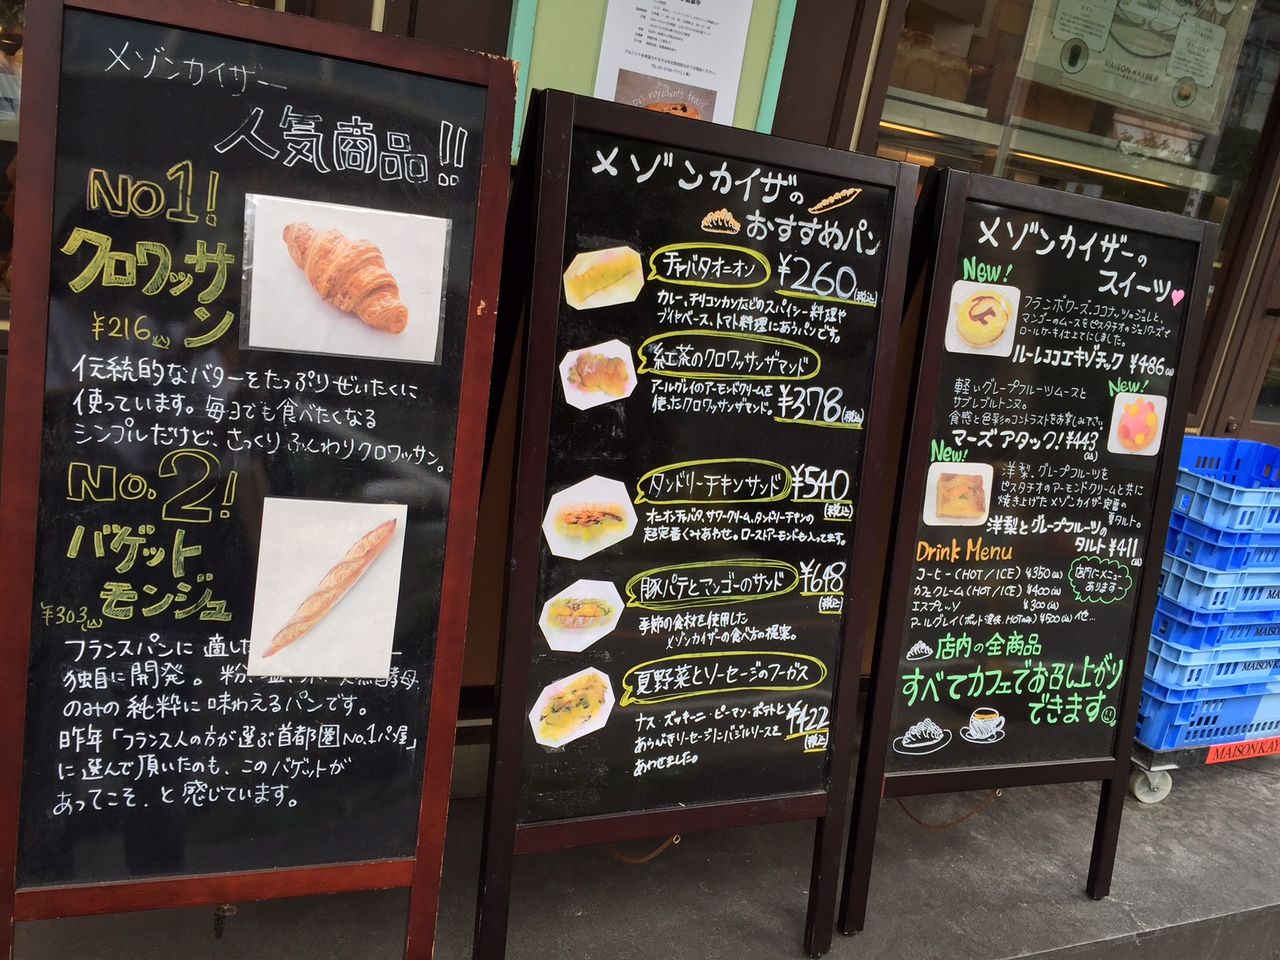 メゾンカイザー
人気商品!!
NO1!
クロワッサン
¥216
伝統的なバターをたっぷりぜいたくに
使っています。毎日でも食べたくなる
シンプルだけど、さっくりふんわりクロワッサン。
NO.2!
バゲット
モンジュ
¥303
フランスパンに適した
独自に開発。粉
のみの純粋に味わえるパンです。
昨年「フランス人の方が選ぶ首都圏No.1パン屋」
に選んで頂いたのも、このバゲットが
あってこそ、と感じています。
メゾンカイザの
おすすめパン
チャバタオニオン ¥260(税込)
カレー、チリコンカンなどのスパイシー料理や
ブイヤベース、トマト料理にあうパンです。
紅茶のクロワッサンザマンド
アールグレイのアーモンドクリームを
使ったクロワッサンザマンド。 ¥378(税込)
タンドリーチキンサンド ¥540(税込)
オニオンチャバタ、サワークリーム、タンドリーチキンの
超定番くみあわせ。ローストアーモンドも入ってます。
豚パテとマンゴーのサンド ¥648(税込)
季節の食材を使用した
メゾンカイザーの食べ方の提案。
夏野菜とソーセージのフーガス
ナス・ズッキーニ・ピーマン・ポテトと
あらびきソーセージにバジルソースを
あわせました。 ¥422(税込)
メゾンカイザーの
スイーツ♥
New!
フランボワーズ、ココナッツのジュレと、
マンゴーのムースをピスタチオのジェノワーズで
ロールケーキ仕立てにしました。
ルーレココエキゾチック ¥486
New!
軽いグレープフルーツムースと
サブレブルトンヌ。
食感と色彩のコントラストをお楽しみ下さい。
マーズアタック! ¥443
New!
洋梨、グレープフルーツを
ピスタチオのアーモンドクリームと共に
焼き上げたメゾンカイザー定番の
夏タルト。
洋梨とグレープフルーツの
タルト ¥411
Drink Menu
コーヒー(HOT/ICE) ¥350
カフェクレーム(HOT/ICE) ¥400
エスプレッソ ¥300
アールグレイ(ポット提供、HOTのみ) ¥500 他…
店内にメニュー
あります～
店内の全商品
すべてカフェでお召し上がり
できます
MAISON KAYSER
MAISON KAY